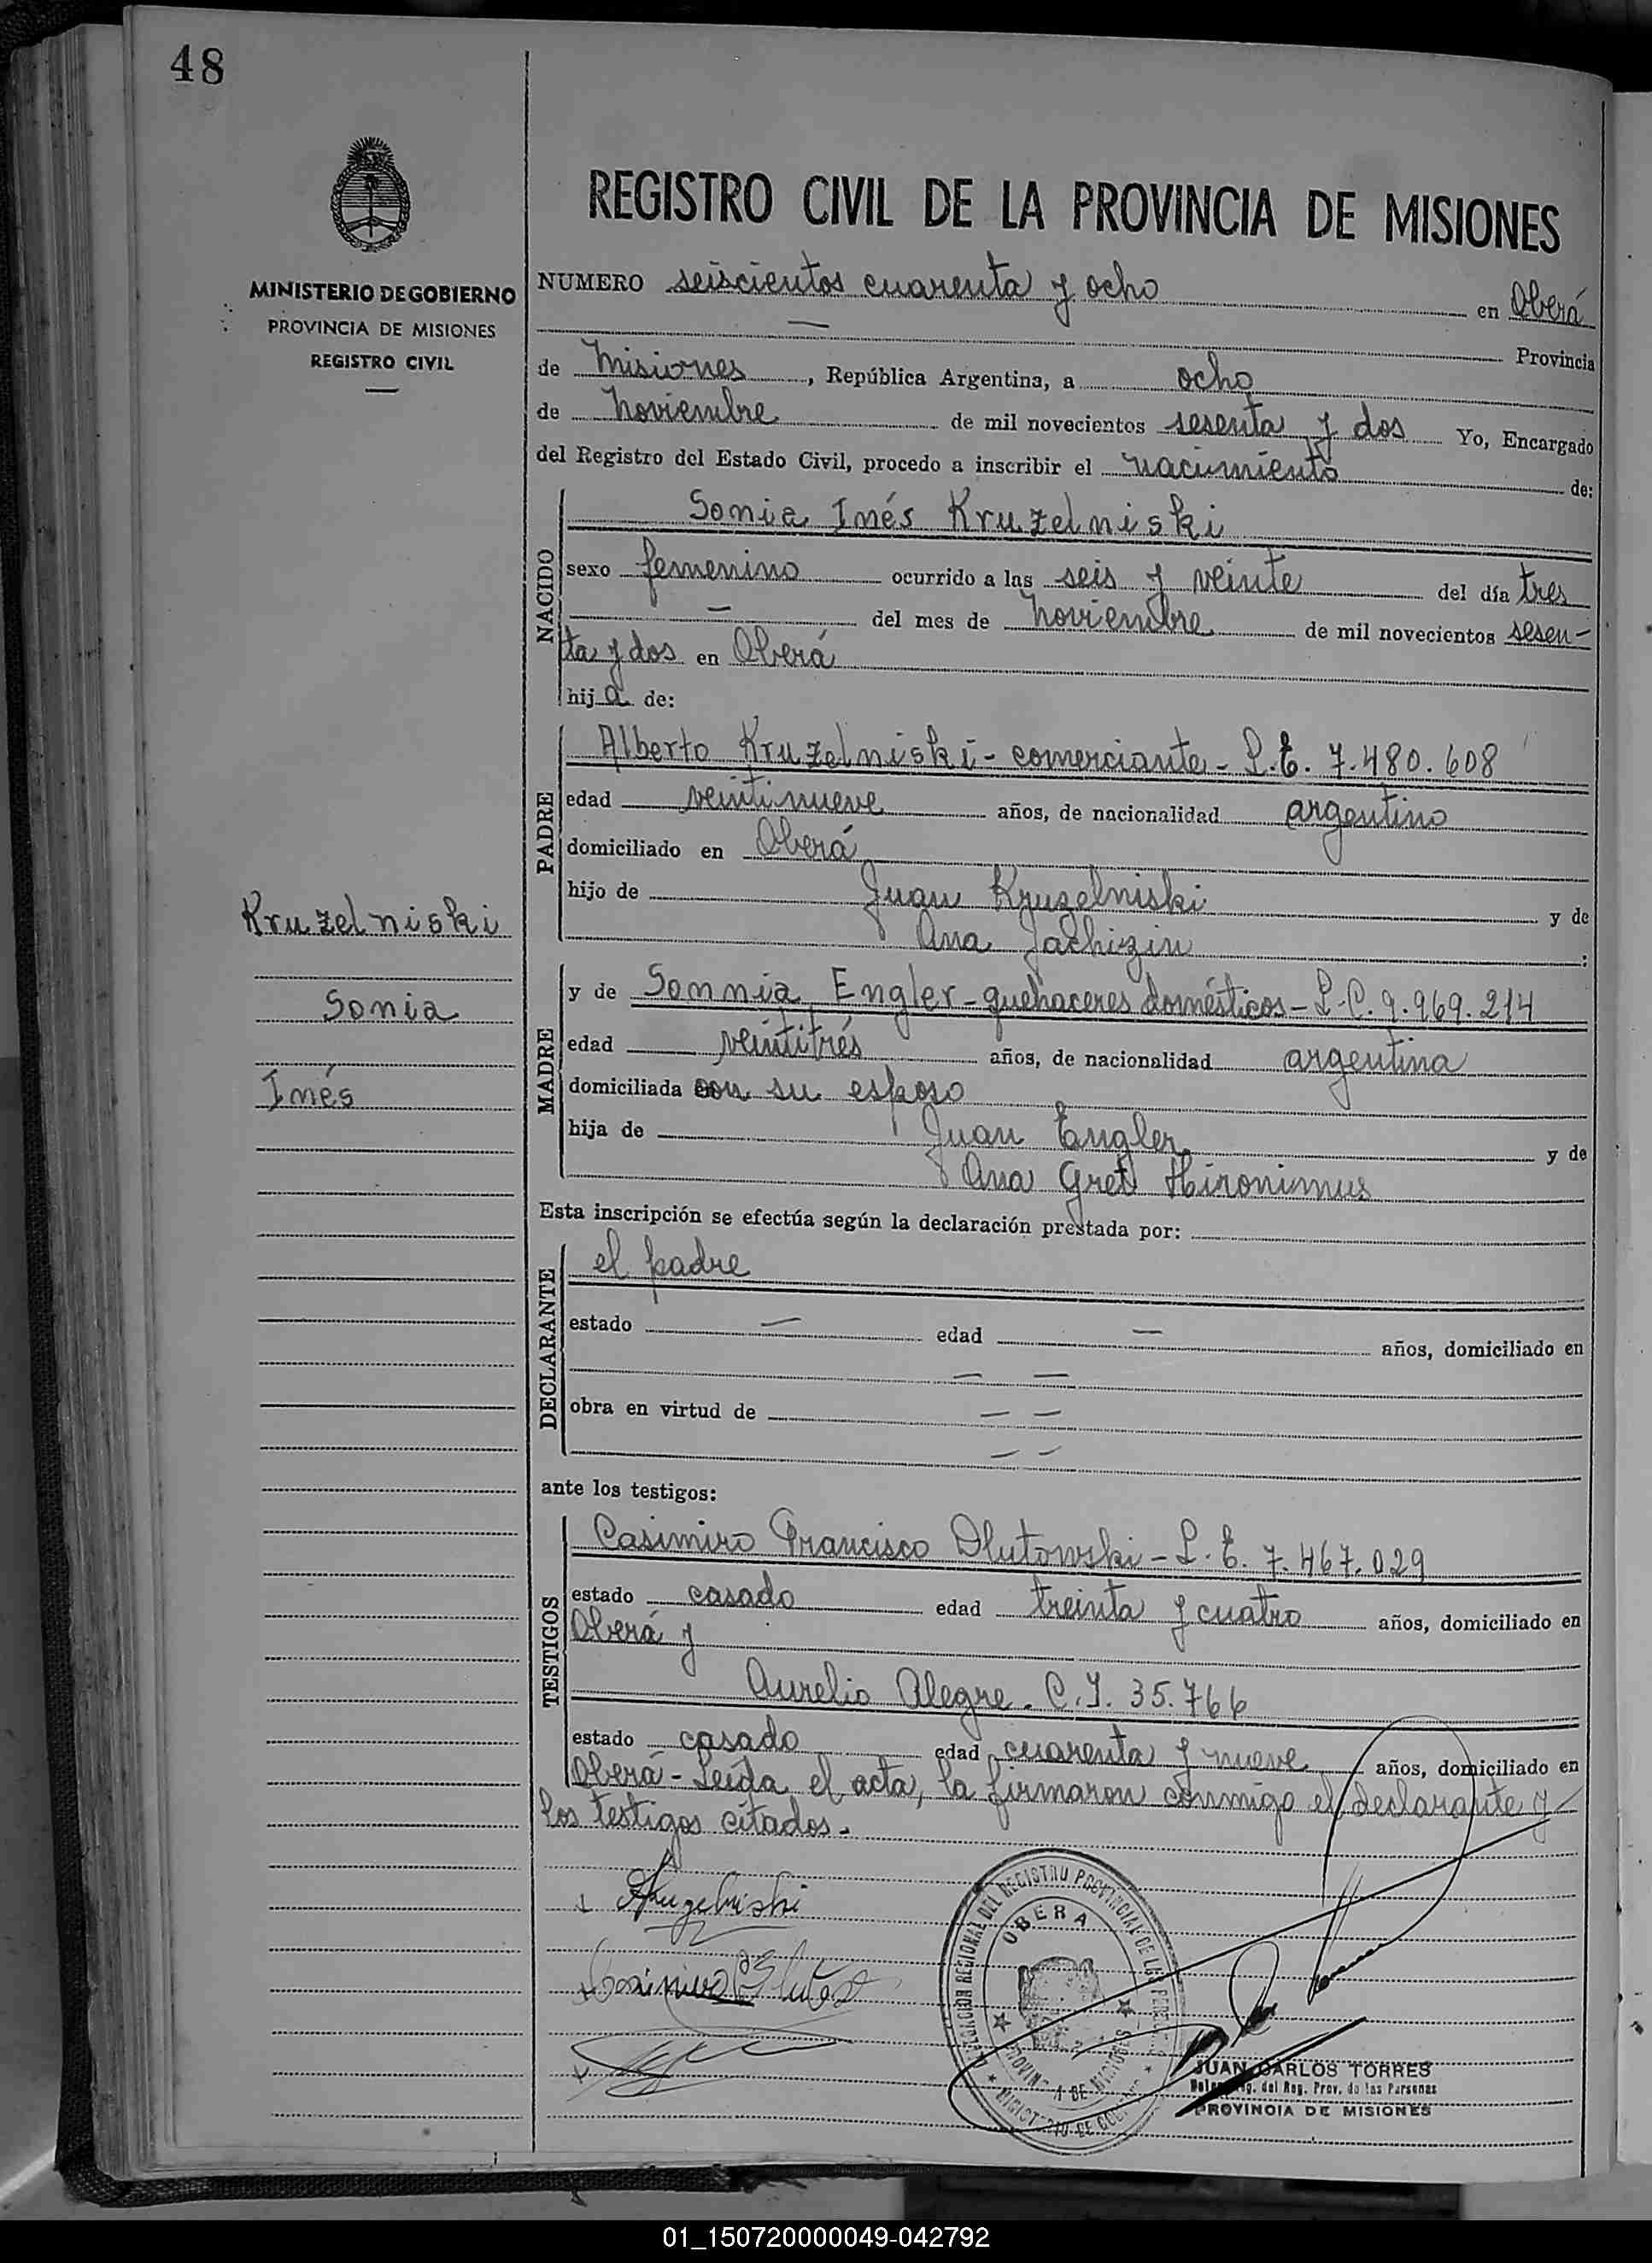 48
REGISTRO CIVIL DE LA PROVINCIA DE MISIONES
MINISTERIO DE GOBIERNO
PROVINCIA DE MISIONES
REGISTRO CIVIL
NUMERO seiscientos cuarenta y ocho en Oberá
— Provincia
de Misiones, República Argentina, a ocho
de Noviembre de mil novecientos sesenta y dos Yo, Encargado
del Registro del Estado Civil, procedo a inscribir el nacimiento de:
NACIDO
Sonia Inés Kruzelniski
sexo femenino ocurrido a las seis y veinte del día tres
— del mes de Noviembre de mil novecientos sesen-
ta y dos en Oberá
hija de:
PADRE
Alberto Kruzelniski - comerciante - L.E. 7.480.608
edad veintinueve años, de nacionalidad argentino
domiciliado en Oberá
hijo de Juan Kruzelniski y de
Ana Jachizin:
Kruzelniski
Sonia
Inés
MADRE
y de Sonnia Engler - quehaceres domésticos - L.C. 9.969.214
edad veintitrés años, de nacionalidad argentina
domiciliada con su esposo
hija de Juan Engler y de
Ana Gret Hironimus
Esta inscripción se efectúa según la declaración prestada por:
DECLARANTE
el padre
estado — edad — años, domiciliado en
— —
obra en virtud de — —
— —
ante los testigos:
TESTIGOS
Casimiro Francisco Dlutowski - L.E. 7.467.029
estado casado edad treinta y cuatro años, domiciliado en
Oberá y
Aurelio Alegre - C.I. 35.766
estado casado edad cuarenta y nueve años, domiciliado en
Oberá - Leída el acta, la firmaron conmigo el declarante y
los testigos citados.-
Kruzelniski
OBERA
PROVINCIA DE MISIONES
JUAN CARLOS TORRES
del Reg. Prov. de las Personas
PROVINCIA DE MISIONES
01_150720000049-042792